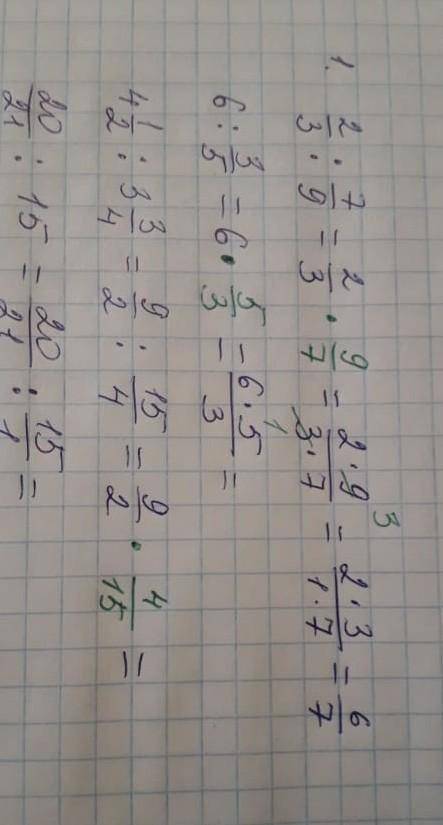 1. 2/3 : 7/9 = 2/3 · 9/7 = 2·9 3/3·7 1 = 2·3/1·7 = 6/7
6 : 3/5 = 6 · 5/3 = 6·5/3 =
4 1/2 : 3 3/4 = 9/2 : 15/4 = 9/2 · 4/15 =
20/21 : 15 = 20/21 : 15/1 =